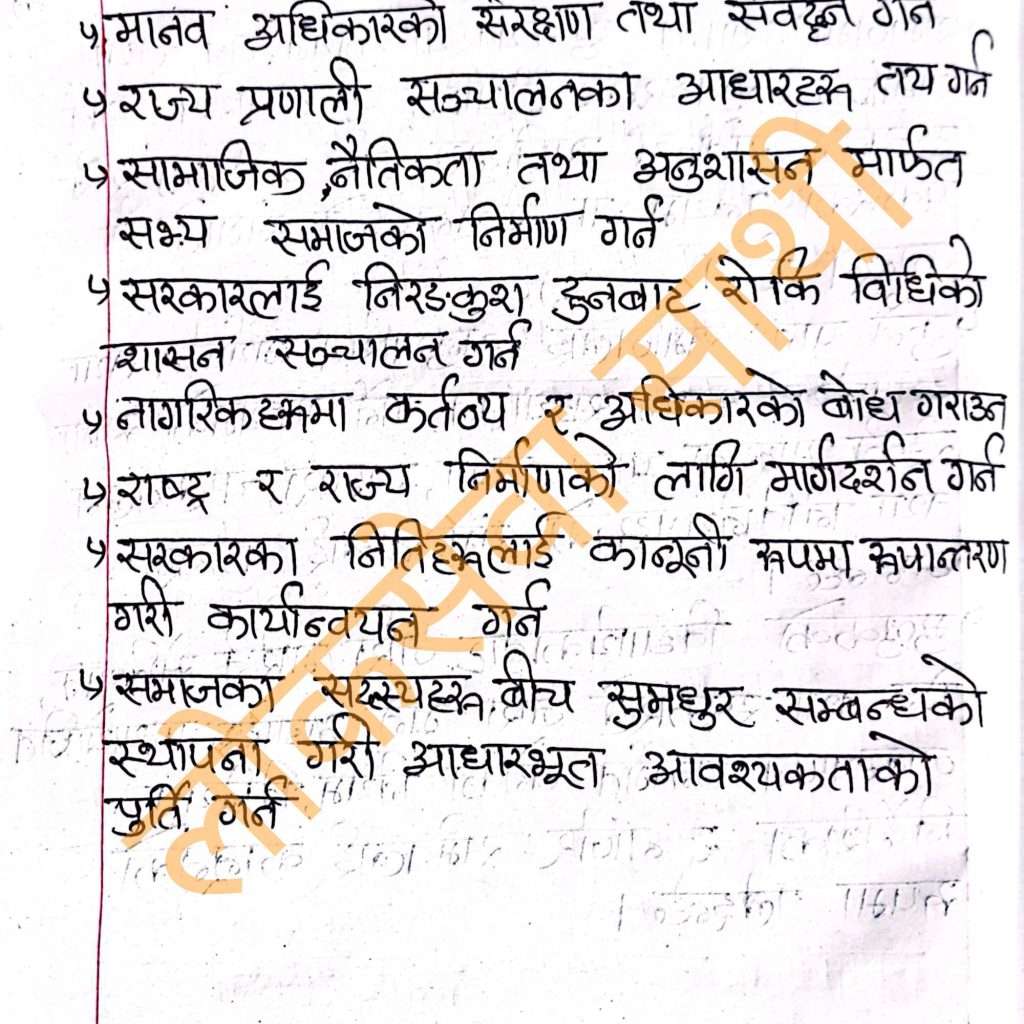 मानव अधिकारको संरक्षण तथा संवर्द्धन गर्न
राज्य प्रणाली सञ्चालनका आधारहरू तय गर्न
सामाजिक, नैतिकता तथा अनुशासन मार्फत
सभ्य समाजको निर्माण गर्न
सरकारलाई निरङ्कुश हुनबाट रोकि विधिको
शासन सञ्चालन गर्न
नागरिकहरूमा कर्तव्य र अधिकारको बोध गराउन
राष्ट्र र राज्य निर्माणको लागि मार्गदर्शन गर्न
सरकारका नितिहरूलाई कानूनी रूपमा रूपान्तरण
गरी कार्यान्वयन गर्न
समाजका सदस्यहरू बीच सुमधुर सम्बन्धको
स्थापना गरी आधारभूत आवश्यकताको
पुर्ति गर्न
लोकसेवा साथी